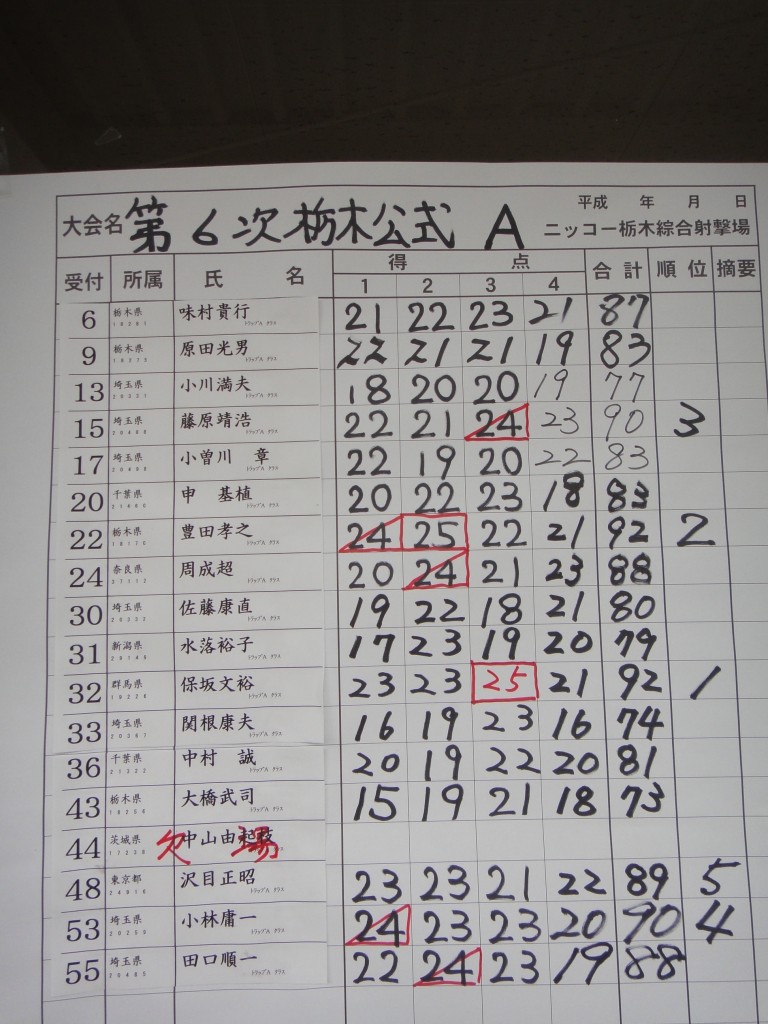 大会名 第6次栃木公式 A 平成 年 月 日
ニッコー栃木綜合射撃場
受付 所属 氏 名 得 点 合計 順位 摘要
1 2 3 4
6 栃木県 味村貴行 21 22 23 21 87
9 栃木県 原田光男 22 21 21 19 83
13 埼玉県 小川満夫 18 20 20 19 77
15 埼玉県 藤原靖浩 22 21 24 23 90 3
17 埼玉県 小曽川 章 22 19 20 22 83
20 千葉県 申 基植 20 22 23 18 83
22 栃木県 豊田孝之 24 25 22 21 92 2
24 奈良県 周成超 20 24 21 23 88
30 埼玉県 佐藤康直 19 22 18 21 80
31 新潟県 水落裕子 17 23 19 20 79
32 群馬県 保坂文裕 23 23 25 21 92 1
33 埼玉県 関根康夫 16 19 23 16 74
36 千葉県 中村 誠 20 19 22 20 81
43 栃木県 大橋武司 15 19 21 18 73
44 茨城県 中山由起枝 欠場
48 東京都 沢目正昭 23 23 21 22 89 5
53 埼玉県 小林庸一 24 23 23 20 90 4
55 埼玉県 田口順一 22 24 23 19 88